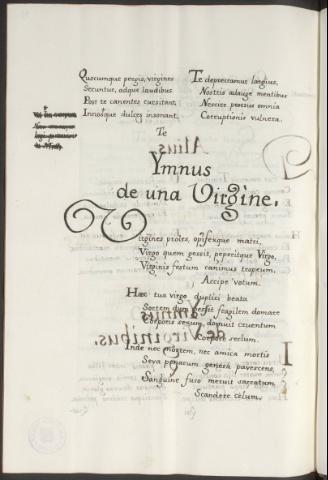 Quocumque pergis, virgines
Secuntur, adque laudibus
Post te canentes cursitant,
Innosque dulces insonant.
Te deprecamur largius,
Nostris adauge mentibus
Nescire prorsus omnia
Corruptionis vulnera.
Te
Ymnus
de una Virgine.
Virginis proles, opifexque matri,
Virgo quem gessit, peperitque Virgo,
Virginis festum canimus tropeum,
Accipe votum.
Hæc tua virgo duplici beata
Sortem dum gessit fragilem domare
Corporis sexum, domuit cruentum
Corpore seclum.
Inde nec mortem, nec amica mortis
Seva penarum genera pavescens,
Sanguine fuso meruit sacratum
Scandere celum.